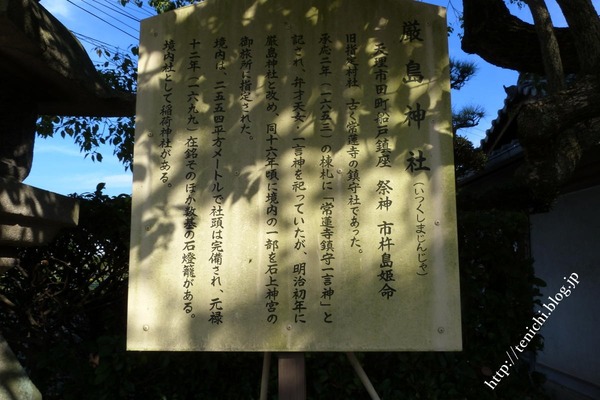 厳島神社(いつくしまじんじゃ)
天理市田町船戸鎮座 祭神 市杵島姫命
旧指定村社 古く常蓮寺の鎮守社であった。
承応二年(一六五三)の棟札に「常蓮寺鎮守一言神」と
記され、弁才天女・一言神を祀っていたが、明治初年に
厳島神社と改め、同十六年頃に境内の一部を石上神宮の
御旅所に指定された。
境内は、二五五四平方メートルで社頭は完備され、元禄
十二年(一六九九)在銘そのほか数基の石燈籠がある。
境内社として稲荷神社がある。
http://tenichi.blog.jp